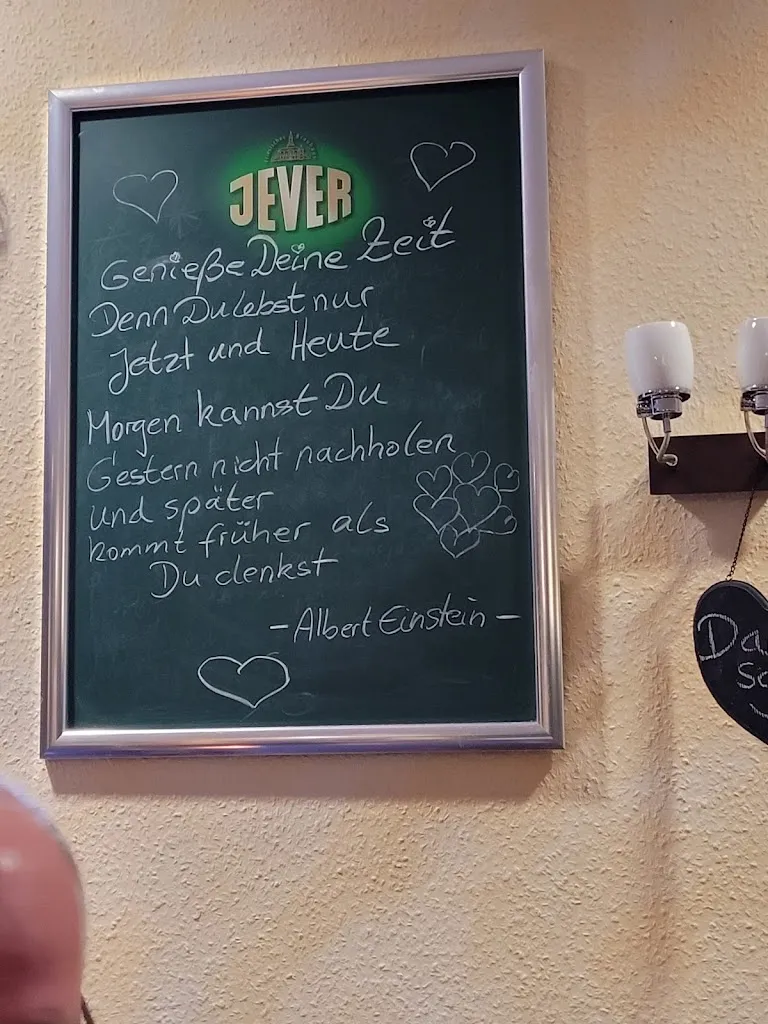 JEVER
Genieße Deine Zeit
Denn Du lebst nur
Jetzt und Heute
Morgen kannst Du
Gestern nicht nachholen
und später
kommt früher als
Du denkst
- Albert Einstein -